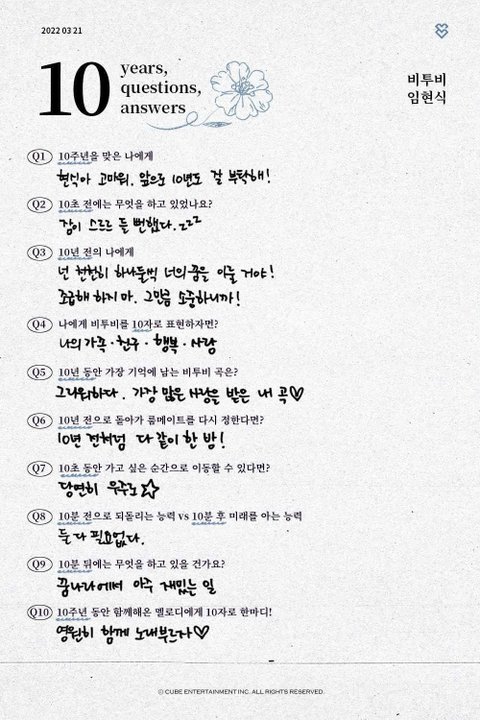 2022 03 21
10 years,
questions,
answers
비투비
임현식
Q1 10주년을 맞은 나에게
현식아 고마워. 앞으로 10년도 잘 부탁해!
Q2 10초 전에는 무엇을 하고 있었나요?
잠이 스르르 들 뻔했다. zzz
Q3 10년 전의 나에게
넌 천천히 하나둘씩 너의 꿈을 이룰 거야!
조급해 하지 마. 그만큼 소중하니까!
Q4 나에게 비투비를 10자로 표현하자면?
나의 가족·친구·행복·사랑
Q5 10년 동안 가장 기억에 남는 비투비 곡은?
그리워하다. 가장 많은 사랑을 받은 내 곡♡
Q6 10년 전으로 돌아가 룸메이트를 다시 정한다면?
10년 전처럼 다 같이 한 방!
Q7 10초 동안 가고 싶은 순간으로 이동할 수 있다면?
당연히 우주로☆
Q8 10분 전으로 되돌리는 능력 vs 10분 후 미래를 아는 능력
둘 다 필요없다.
Q9 10분 뒤에는 무엇을 하고 있을 건가요?
꿈나라에서 아주 재밌는 일
Q10 10주년 동안 함께해온 멜로디에게 10자로 한마디!
영원히 함께 노래부르자♡
© CUBE ENTERTAINMENT INC. ALL RIGHTS RESERVED.